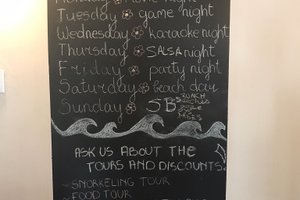 Monday night
Tuesday game night
Wednesday karaoke night
Thursday SALSA night
Friday party night
Saturday beach day
Sunday SB
ASK US ABOUT THE
TOURS AND DISCOUNTS:
- SNORKELING TOUR
- FOOD TOUR